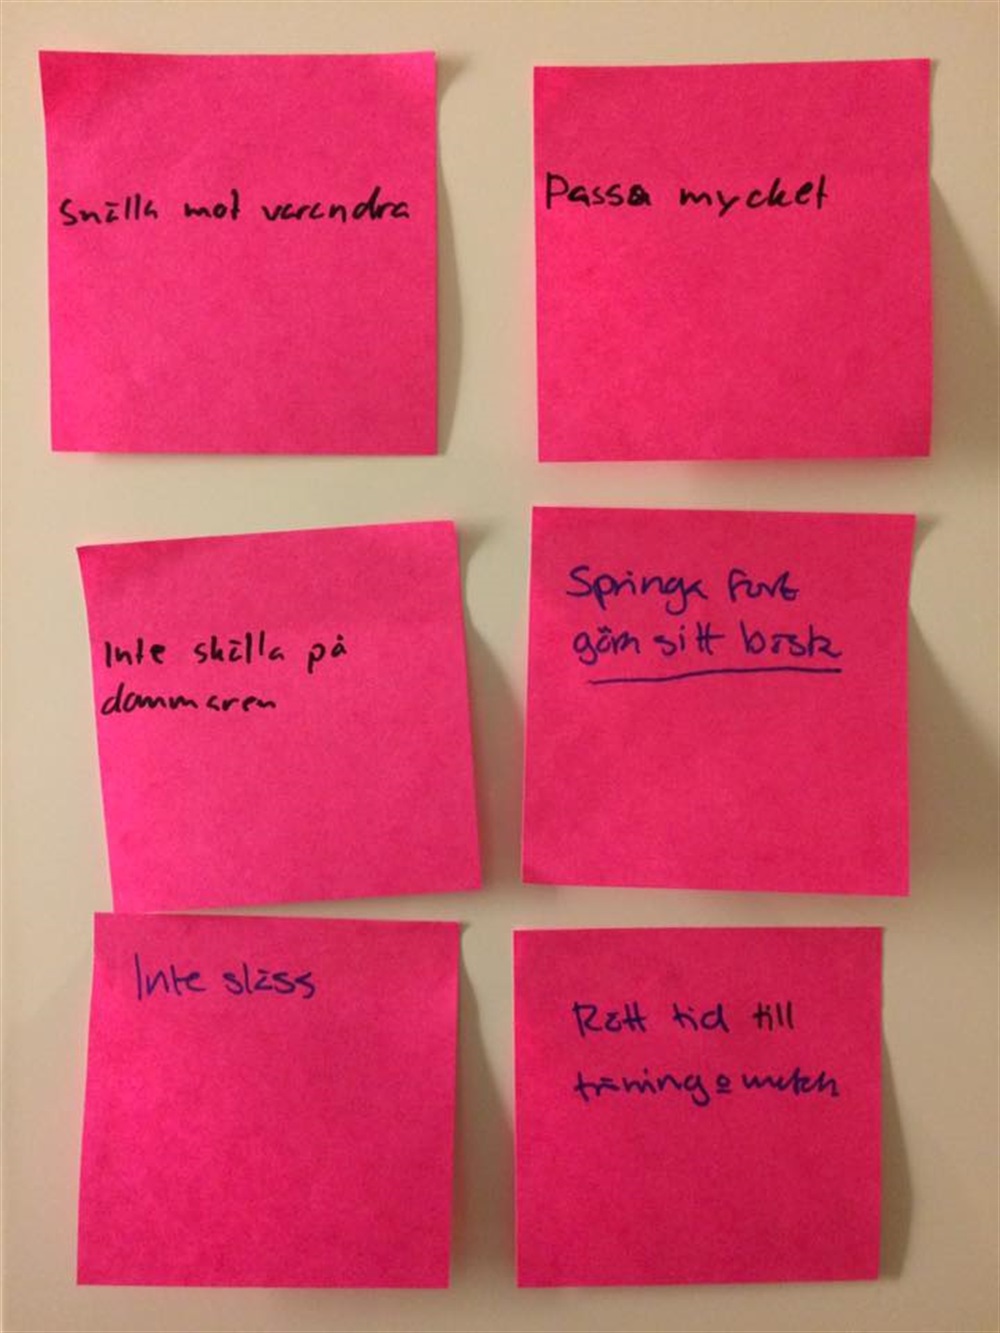 Snälla mot varandra
Passa mycket
Inte skälla på
dommaren
Springa fort
göra sitt bästa
Inte slåss
Rätt tid till
träning o match